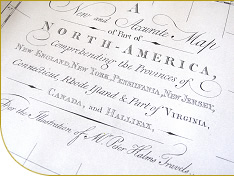 A
New and Accurate Map
of Part of
NORTH-AMERICA,
Comprehending the Provinces of
NEW ENGLAND, NEW YORK, PENSILVANIA, NEW JERSEY,
Connecticut, Rhode Island & Part of VIRGINIA,
CANADA, and HALLIFAX,
For the Illustration of Mr. Peter Kalms Travels.